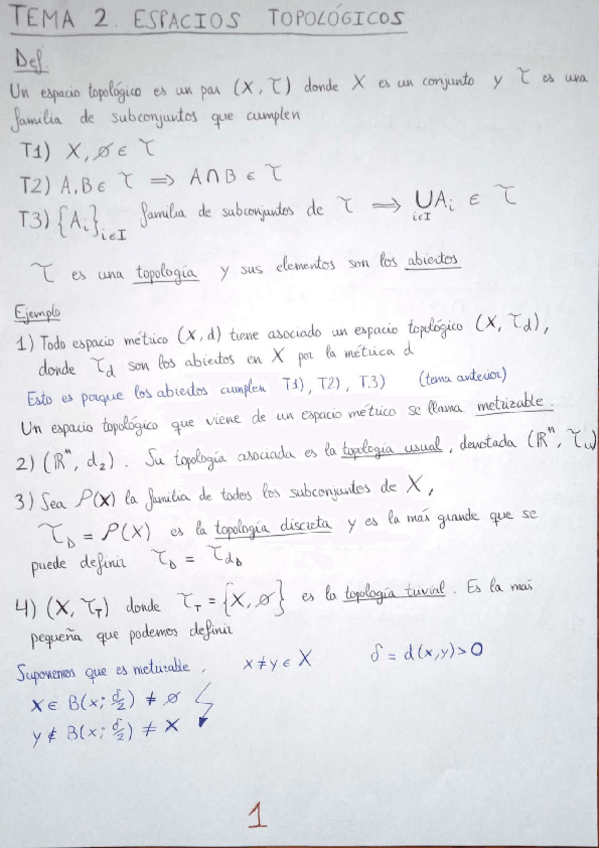 TEMA 2. ESPACIOS TOPOLÓGICOS
Def.
Un espacio topológico es un par (X, τ) donde X es un conjunto y τ es una
familia de subconjuntos que cumplen
T1) X, ∅ ∈ τ
T2) A, B ∈ τ ⟹ A ∩ B ∈ τ
T3) {A_i}_{i∈I} familia de subconjuntos de τ ⟹ ⋃_{i∈I} A_i ∈ τ
τ es una topología y sus elementos son los abiertos
Ejemplo
1) Todo espacio métrico (X, d) tiene asociado un espacio topológico (X, τ_d),
donde τ_d son los abiertos en X por la métrica d
Esto es porque los abiertos cumplen T1), T2), T3) (tema anterior)
Un espacio topológico que viene de un espacio métrico se llama metrizable.
2) (ℝⁿ, d₂). Su topología asociada es la topología usual, denotada (ℝⁿ, τ_u)
3) Sea P(X) la familia de todos los subconjuntos de X,
τ_D = P(X) es la topología discreta y es la más grande que se
puede definir τ_D = τ_{d_D}
4) (X, τ_T) donde τ_T = {X, ∅} es la topología trivial. Es la más
pequeña que podemos definir
Suponemos que es metrizable, x ≠ y ∈ X δ = d(x, y) > 0
x ∈ B(x; δ/2) ≠ ∅
y ∉ B(x; δ/2) ≠ X
1